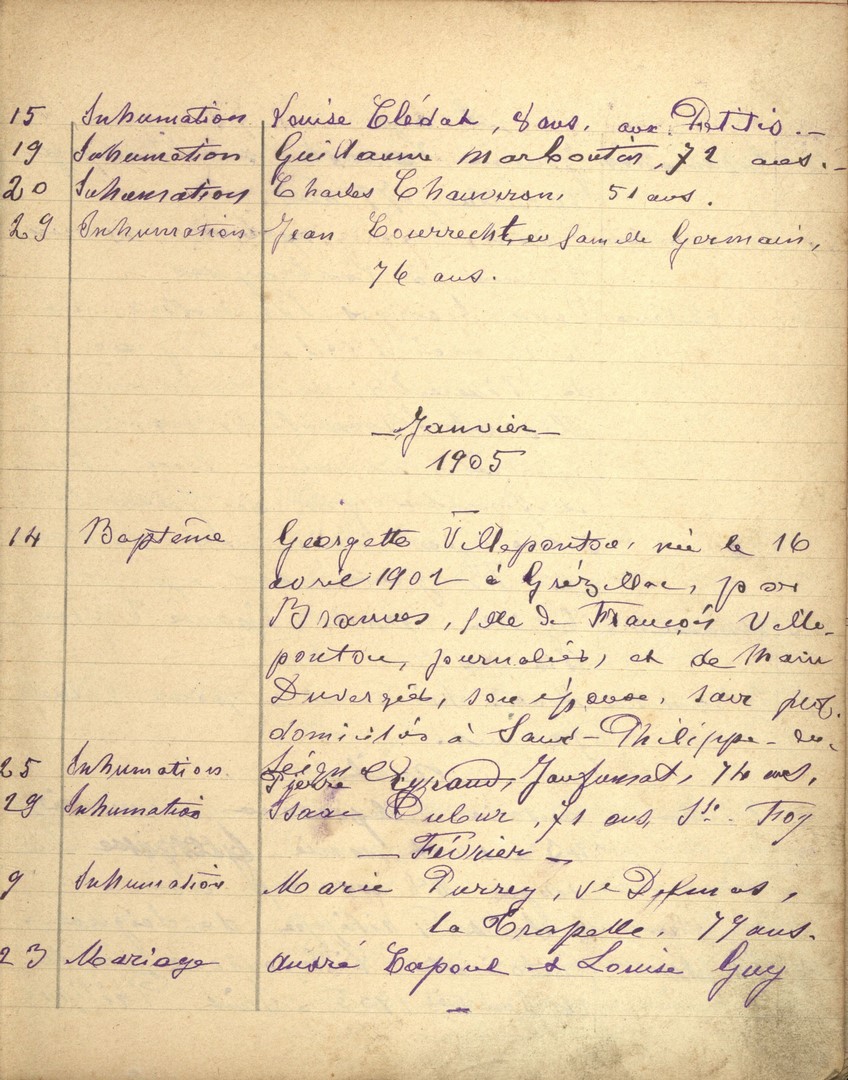 15 Inhumation Louise Clédat, 8 ans, aux Petitis. -
19 Inhumation Guillaume Marboutin, 72 ans. -
20 Inhumation Charles Chauviron, 51 ans.
29 Inhumation Jean en famille Germain,
76 ans.
- Janvier -
1905
14 Baptême Georgette Villepontoux, née le 16
avril 1902 à Grézillac, par
Brannes, fille de François Ville-
pontoux, journalier, et de Marie
Duvergié, son épouse,
domiciliés à Saint-Philippe-du-
Seignal
25 Inhumation Pierre Eyraud, 74 ans,
29 Inhumation Isaac Dubur, 71 ans, Ste Foy
- Février -
9 Inhumation Marie Purrey, Ve Delmas,
la Trapelle, 79 ans.
23 Mariage André Lapoul et Louise Guy